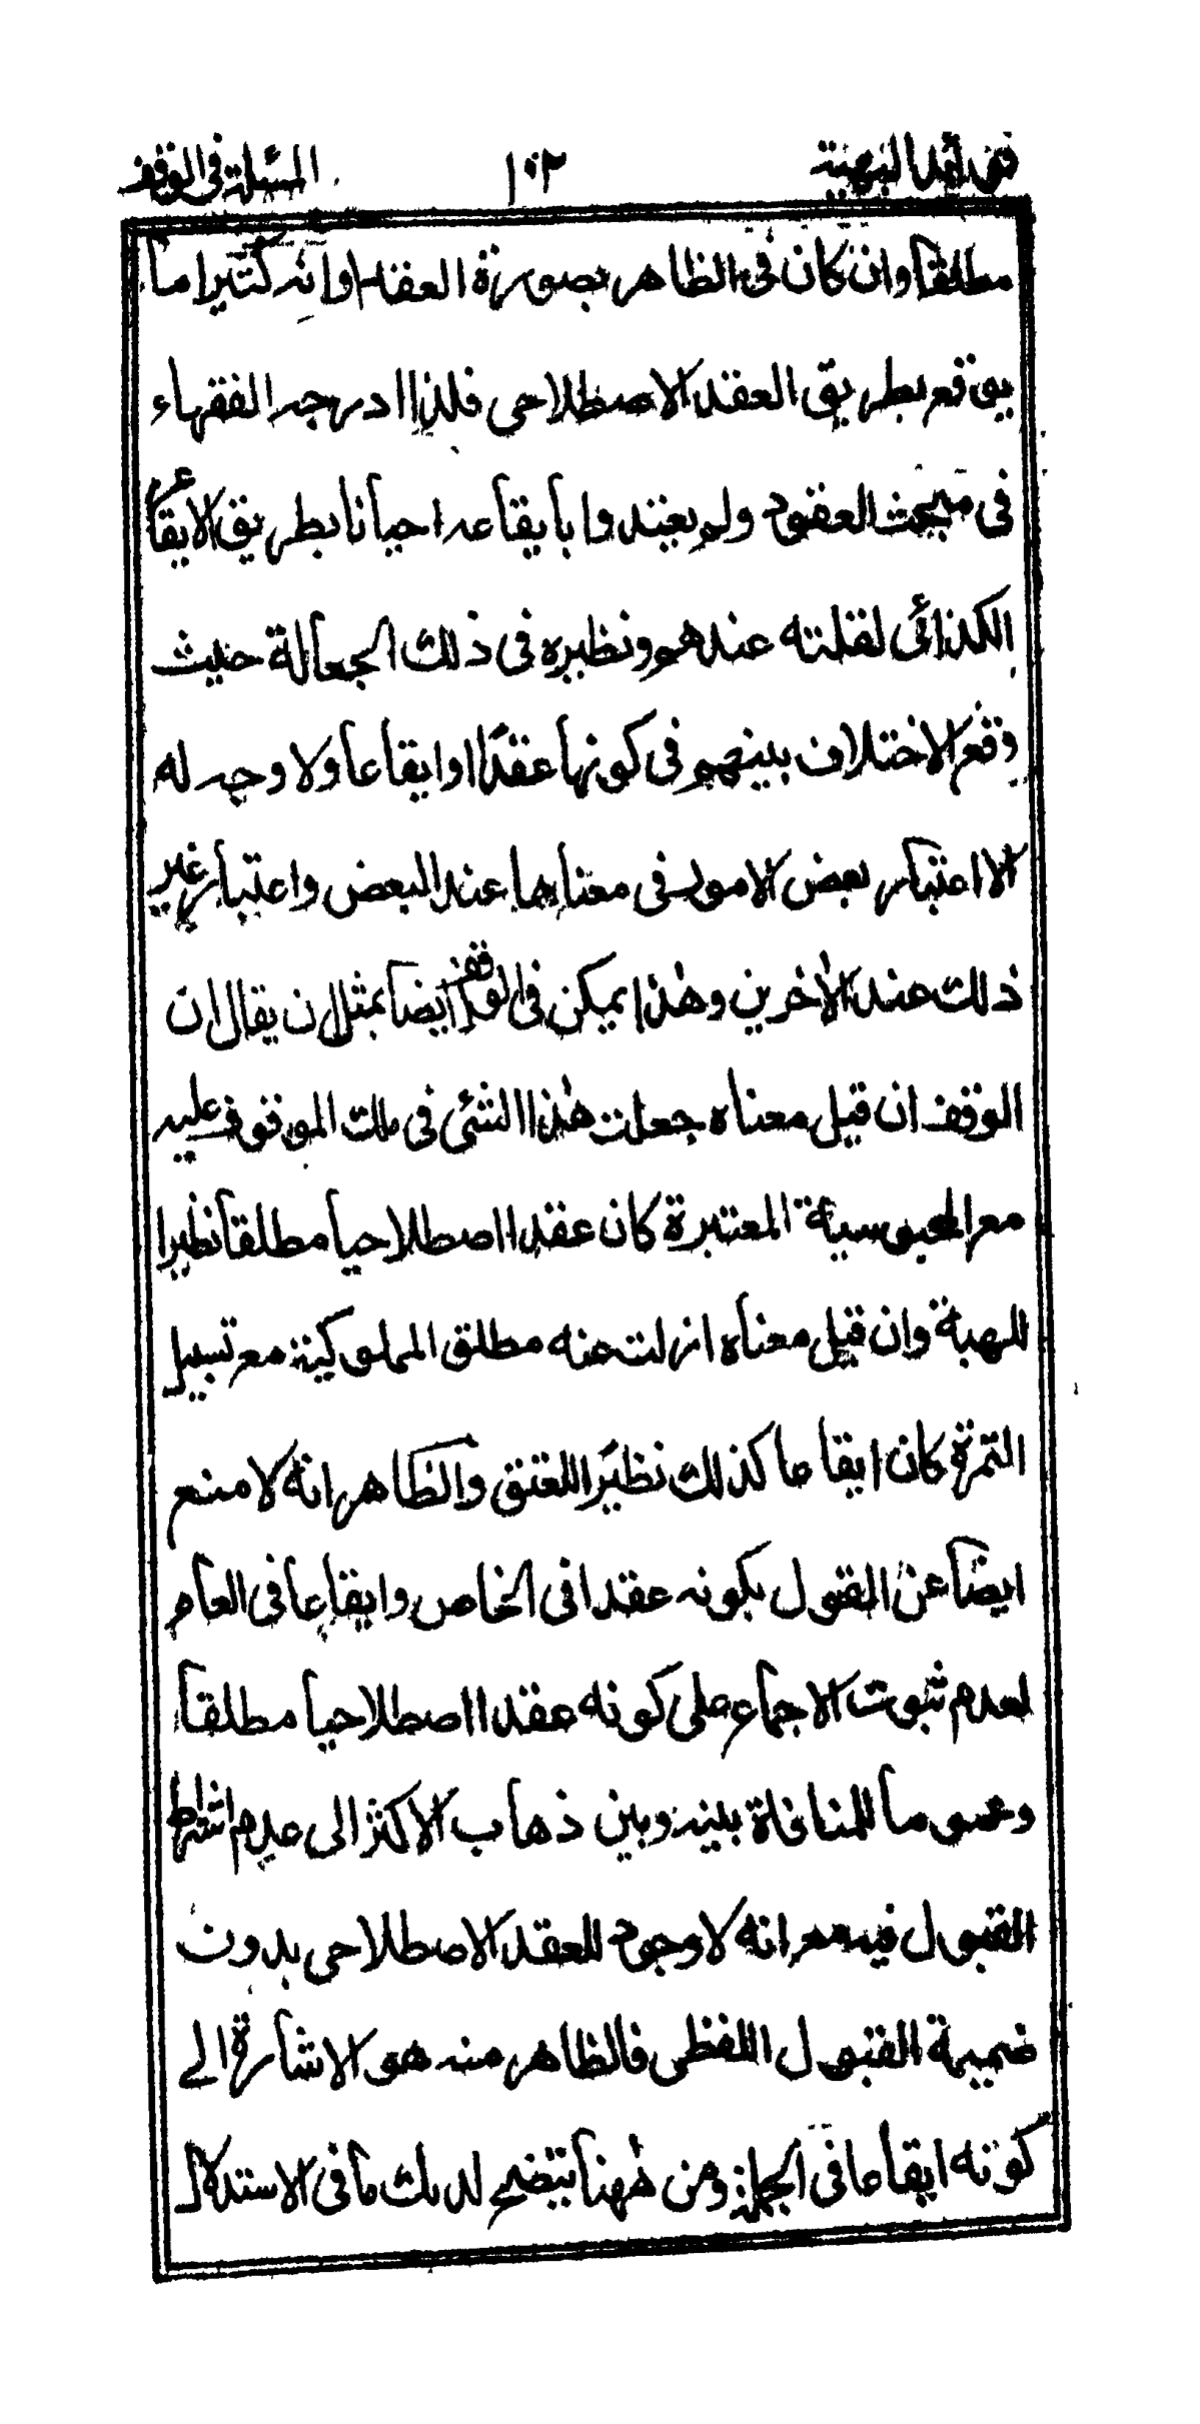 فوائد البهية ١٠٢ المسئلة في الوقف
مطلقاً وان كان في الظاهر بصورة العقد او انه كثيرا ما
يوقع بطريق العقد الاصطلاحي فلذا ادرجه الفقهاء
في مبحث العقود ولم يعتدوا بأيقاعه احيأنا بطريق الايقأع
الكذائي لقلته عندهم ونظيره في ذلك الجعألة حيث
وقع الاختلاف بينهم في كونهأ عقدًا او ايقأعأ ولا وجه له
الا اعتبأر بعض الامور في معنأها عند البعض واعتبأر غير
ذلك عند الأخرين وهذا يمكن في الوقف ايضأ بمثل ان يقال ان
الوقف ان قيل معناه جعلت هذا الشئي في ملك الموقوف عليه
مع المحبوسية المعتبرة كان عقدا اصطلاحيأ مطلقأ نظيرا
للهبة وان قيل معنأه ازلت عنه مطلق المملوكية مع تسبيل
الثمرة كان ايقأعا كذلك نظيرًا للعتق والظأهر انه لا منع
ايضأ عن القول بكونه عقدا في الخاص وايقأعا في العأم
لعدم ثبوت الاجمأع على كونه عقدا اصطلاحيأ مطلقأ
وعموما للمنافاة بينه وبين ذهأب الاكثر الى عدم اشتراط
القبول فيه مع انه لا وجود للعقد الاصطلاحي بدون
ضميمة القبول اللفظي فالظاهر منه هو الاشأرة الى
كونه ايقأعا في الجملة ومن ههنأ يتضح لديك مأ في الاستدلال